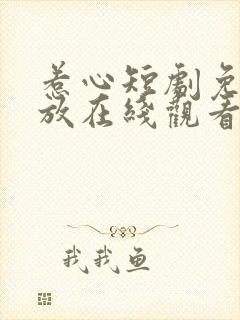 惹心短劇免
放在綫觀看
我我鱼